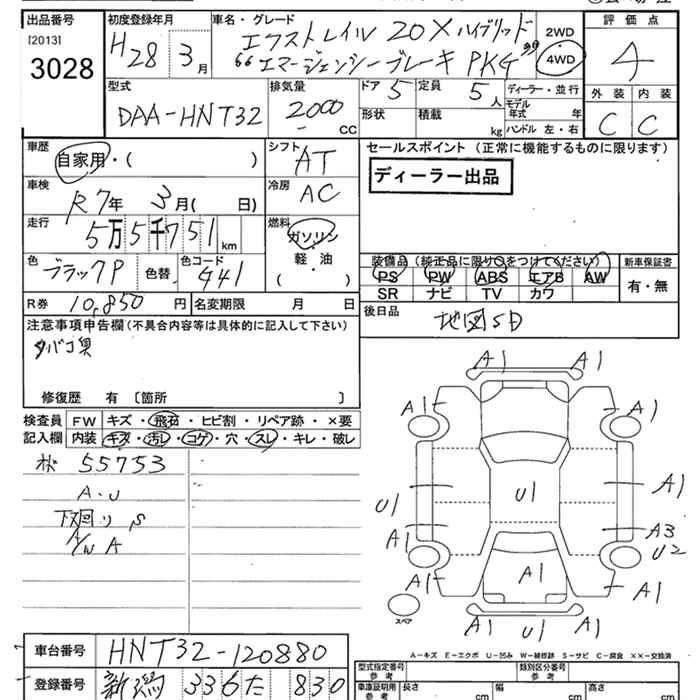 出品番号
[2013]
3028
初度登録年月
H28 3月
車名・グレード
エクストレイル 20X ハイブリッド
エマージェンシーブレーキ PKG
2WD
4WD
評価点
4
外装 内装
C C
型式
DAA-HNT32
排気量
2000
CC
ドア 5
定員 5人
形状
積載
kg
ディーラー・並行
モデル年式 年
ハンドル 左・右
車歴
自家用・( )
シフト
AT
車検
R7年 3月( 日)
冷房
AC
走行
5万5千751km
燃料
ガソリン
軽・油
( )
色
ブラックP
色替
色コード
G41
R券 10,850 円
名変期限 月 日
セールスポイント (正常に機能するものに限ります)
ディーラー出品
装備品 (純正品に限り○をつけてください)
新車保証書
PS PW ABS エアB AW
SR ナビ TV カワ
有・無
後日品
地図SD
注意事項申告欄 (不具合内容等は具体的に記入して下さい)
タバコ臭
修復歴 有 〔箇所 〕
検査員
記入欄
FW キズ・飛石・ヒビ割・リペア跡・×要
内装 キズ・汚レ・コゲ・穴・スレ・キレ・破レ
55753
A・U
下廻り S
A/W A
A1 A1
A1 A1
U1 U1 A1
A1 A3
U2
A1 A1 A1
A1 U1 A1
スペア
A-キズ E-エクボ U-凹み W-補修跡 S-サビ C-腐食 XX-交換済
車台番号 HNT32-120880
登録番号 新潟 336 た 830
型式指定番号
参考
類別区分番号
参考
車庫証明用
参考
長さ cm
幅 cm
高さ cm